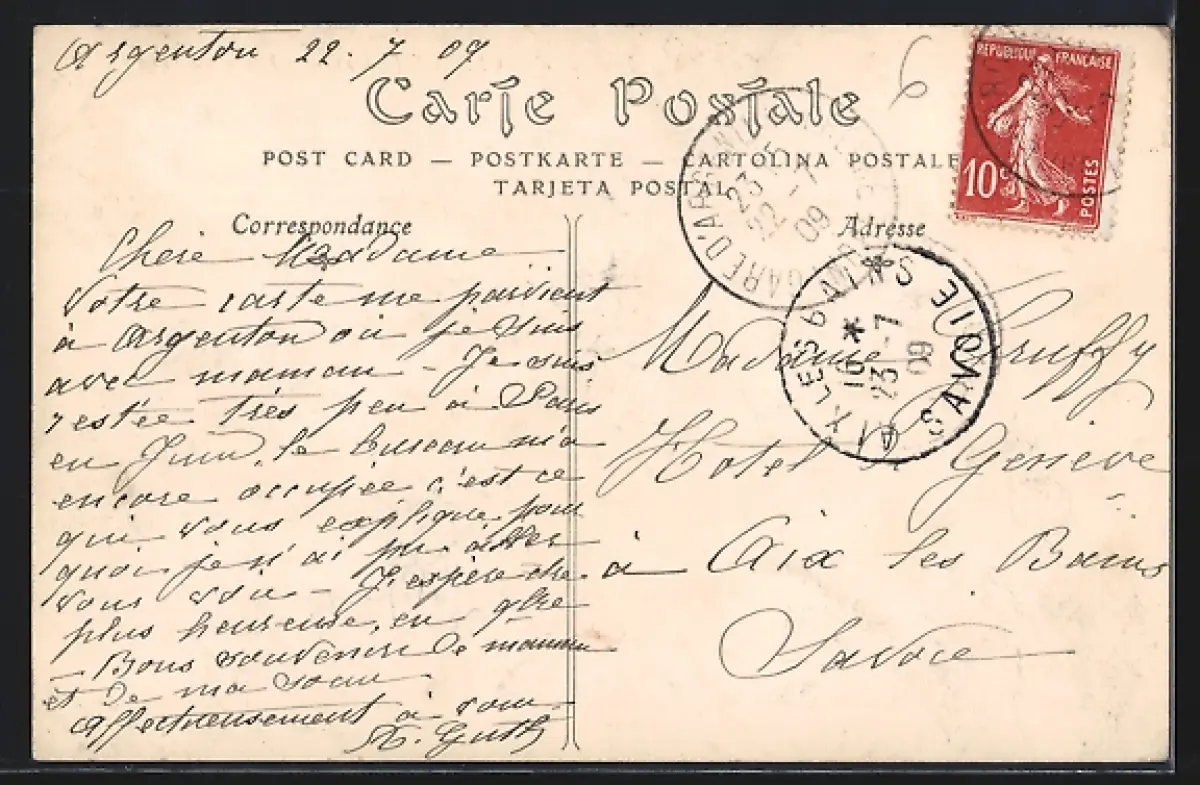 Argenton 22 . 7 09
6
Carte Postale
POST CARD — POSTKARTE — CARTOLINA POSTALE
TARJETA POSTAL
REPUBLIQUE FRANÇAISE
10 c
POSTES
GARE D'ARGENT
23
22 - 7
09
AIX LES BAINS
SAVOIE
16 *
23 - 7
09
Correspondance
Chère Madame
Votre carte me parvient
à Argenton où je suis
avec maman - Je suis
restée très peu à Paris
en Juin, le bureau m'a
encore occupée c'est ce
qui vous explique pour
quoi je n'ai pu aller
vous voir - J'espère être
plus heureuse en 8bre
- Bons souvenirs de maman
et de ma soeur
affectueusement à vous
Adresse
Madame
Hotel de Genève
à Aix les Bains
Savoie